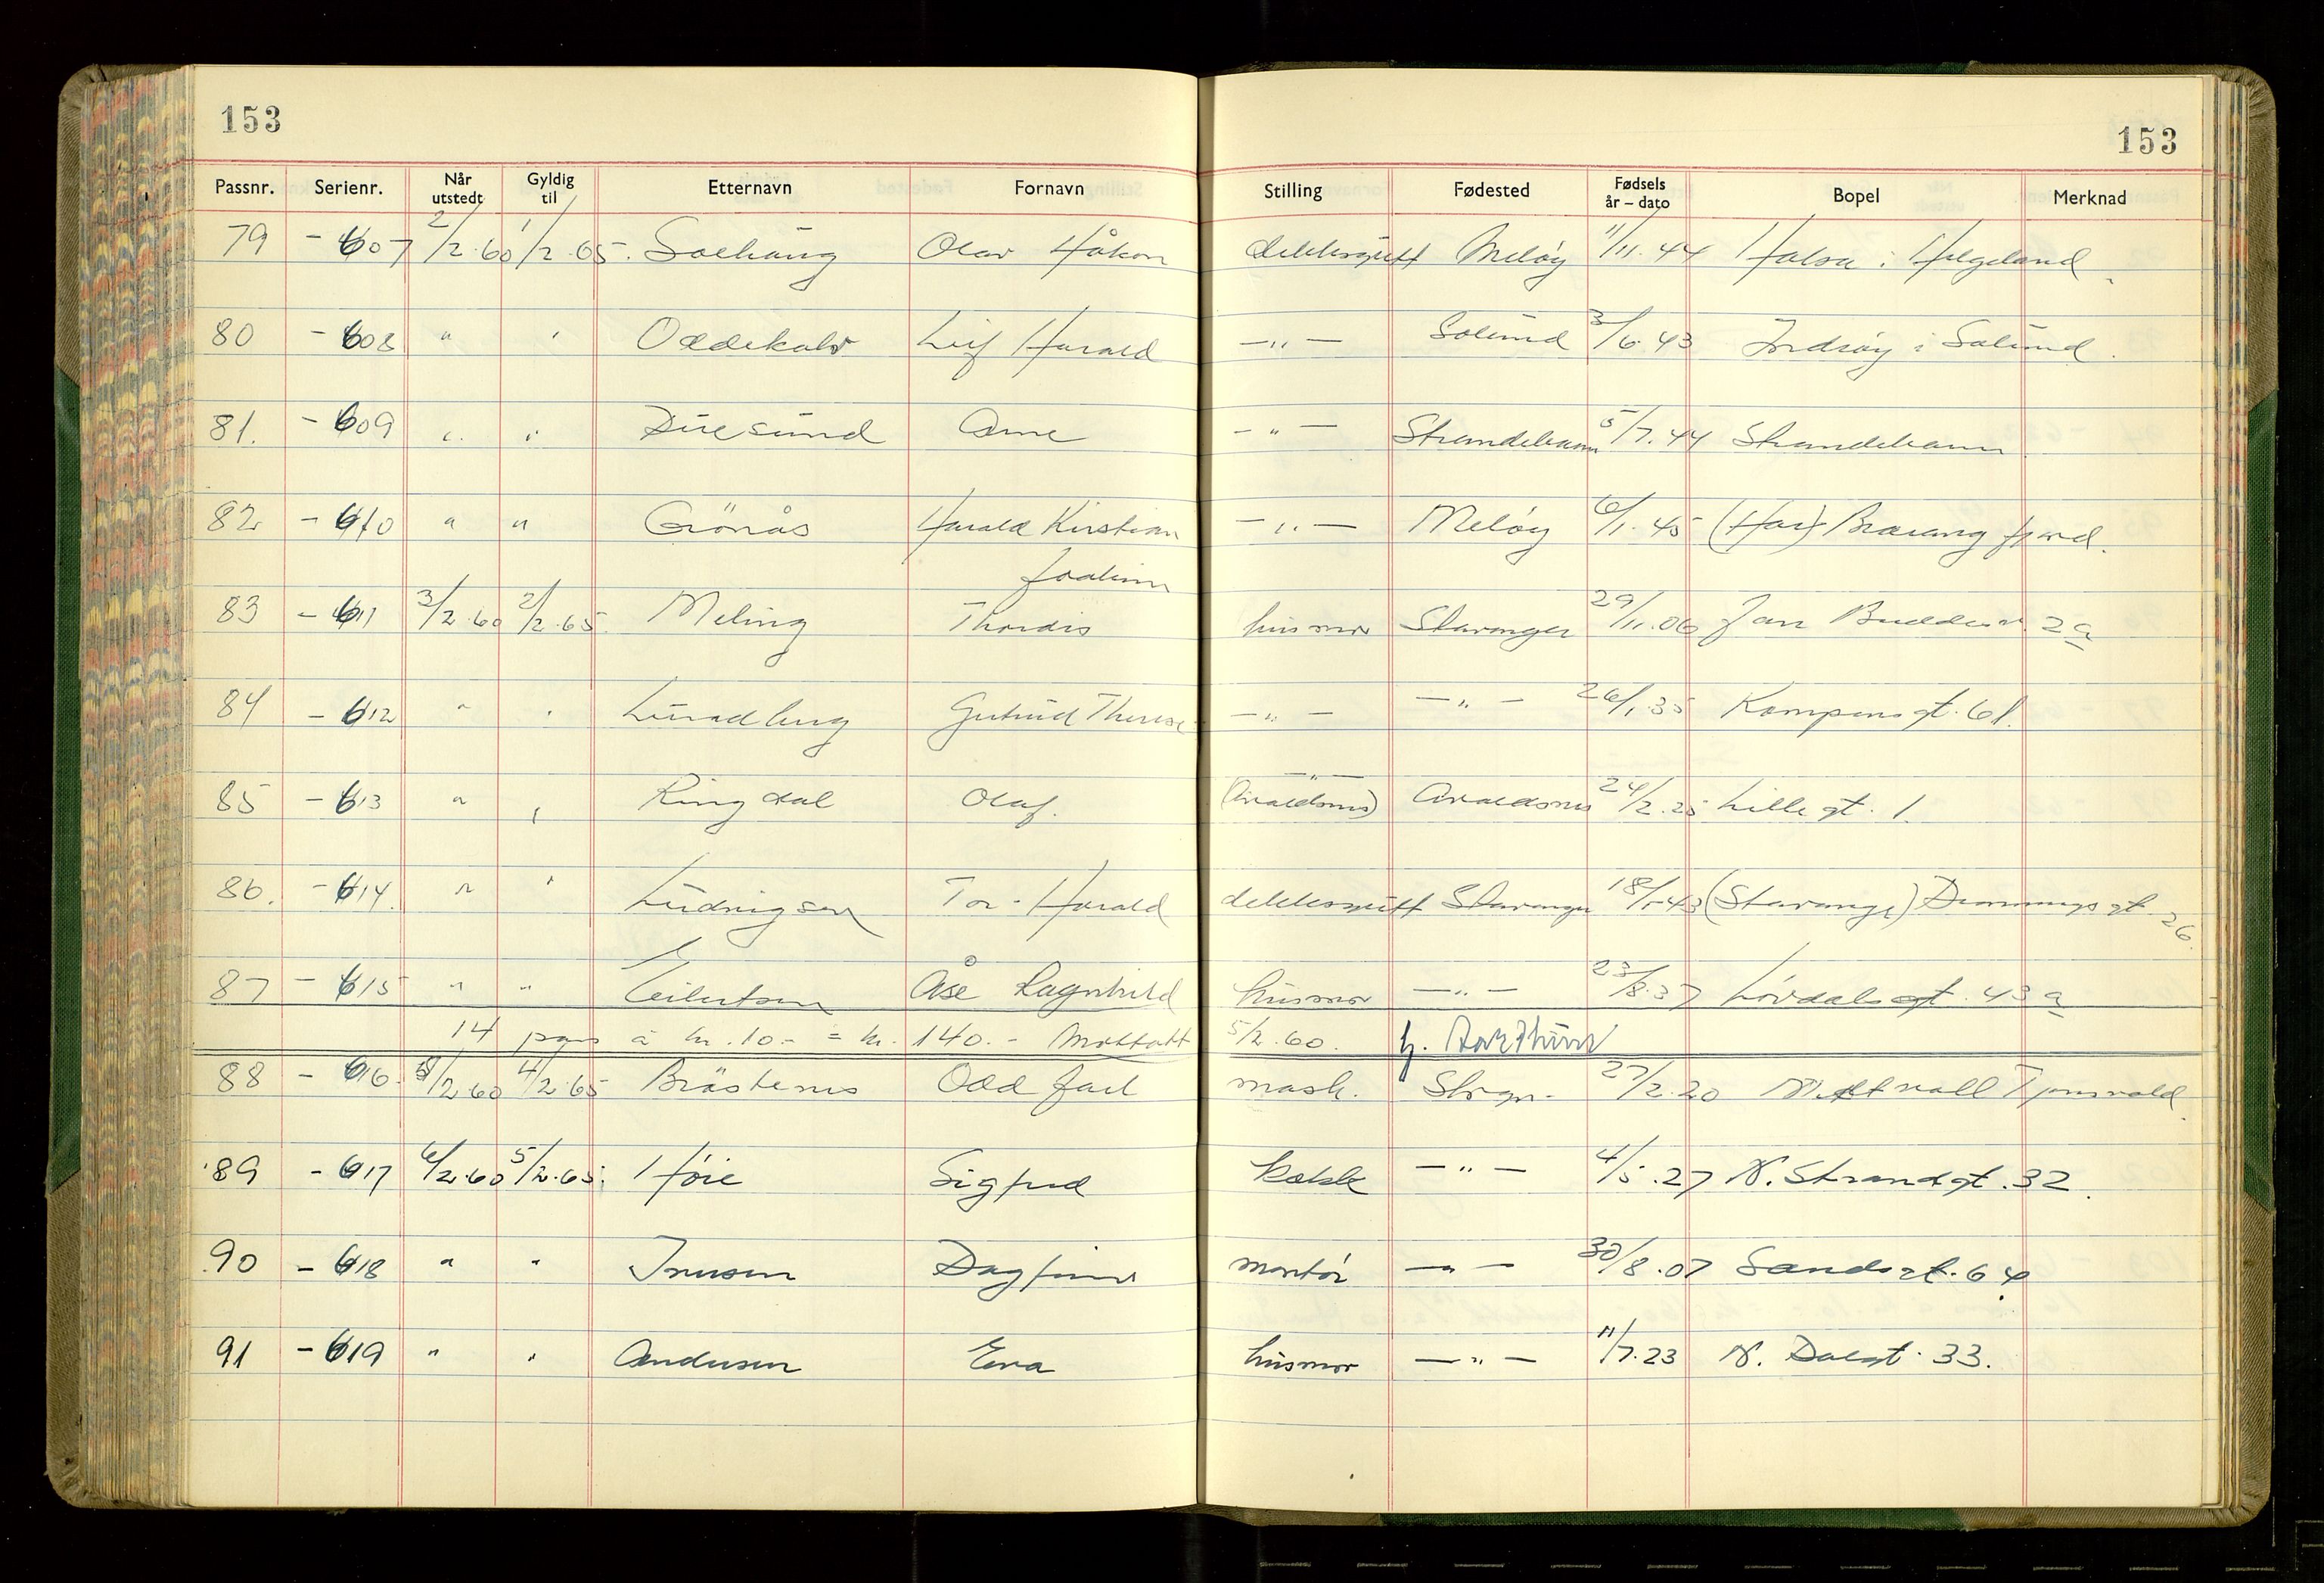 153
153
Passnr. Serienr. Når utstedt Gyldig til Etternavn Fornavn Stilling Fødested Fødsels år – dato Bopel Merknad
79 - 607 2/2.60 1/2.65. Solhaug Olav Håkon dekksgutt Meløy 11/11.44 Halsa i Helgeland
80 - 608 " " Oddekalv Leif Harald - " - Solund 3/6.43 Indrøy i Solund.
81. - 609 " " Duesund Arne - " - Strandebarm 5/7.44 Strandebarm
82 - 610 " " Grönås Harald Kristian - " - Meløy 6/1.45 (Har) fjord.
Joakim
83 - 611 3/2.60 2/2.65. Meling Thordis husmor Stavanger 29/11.06 Jan 2a
84 - 612 " " Lundberg Gutrud Therese - " - - " - 26/1.35 Kampensgt. 61.
85 - 613 " " Ringdal Olaf. - " - (Avaldsnes) Avaldsnes 24/2.25 Lille gt. 1.
86. - 614. " " Ludvigsen Tor-Harald dekksgutt Stavanger 18/1-43 (Stavanger) Dronningsgt. 26.
87 - 615 " " Eilertsen Åse Ragnhild husmor - " - 23/8.37 Lövdalsgt. 43a
14 pass à kr. 10.- = kr. 140.- Mottatt 5/2.60.
88 - 616. 5/2.60 4/2.65 Bråstenes Odd Jarl mask. Stvgr. 27/2.20 Tjensvold.
89 - 617 6/2.60 5/2.65. Høie Sigfred kokk - " - 4/5.27 N. Strandgt. 32.
90 - 618 " " Iversen Dagfinn montør - " - 30/8.07 Sandsgt. 64.
91 - 619 " " Andersen Eva husmor - " - 11/7.23 N. Dalgt. 33.